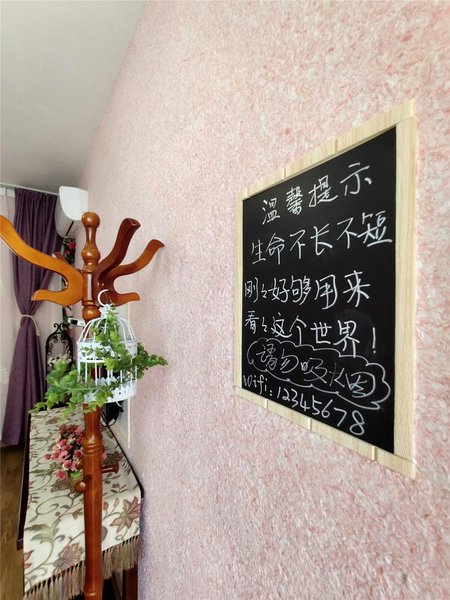 温馨提示
生命不长不短
刚々好够用来
看々这个世界！
请勿吸烟
wifi:12345678